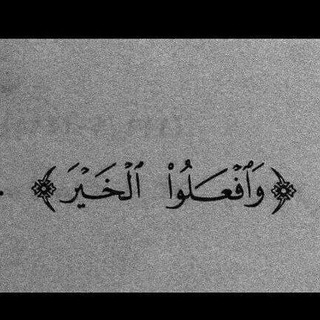 ﴿وَٱفْعَلُوا۟ ٱلْخَيْرَ﴾